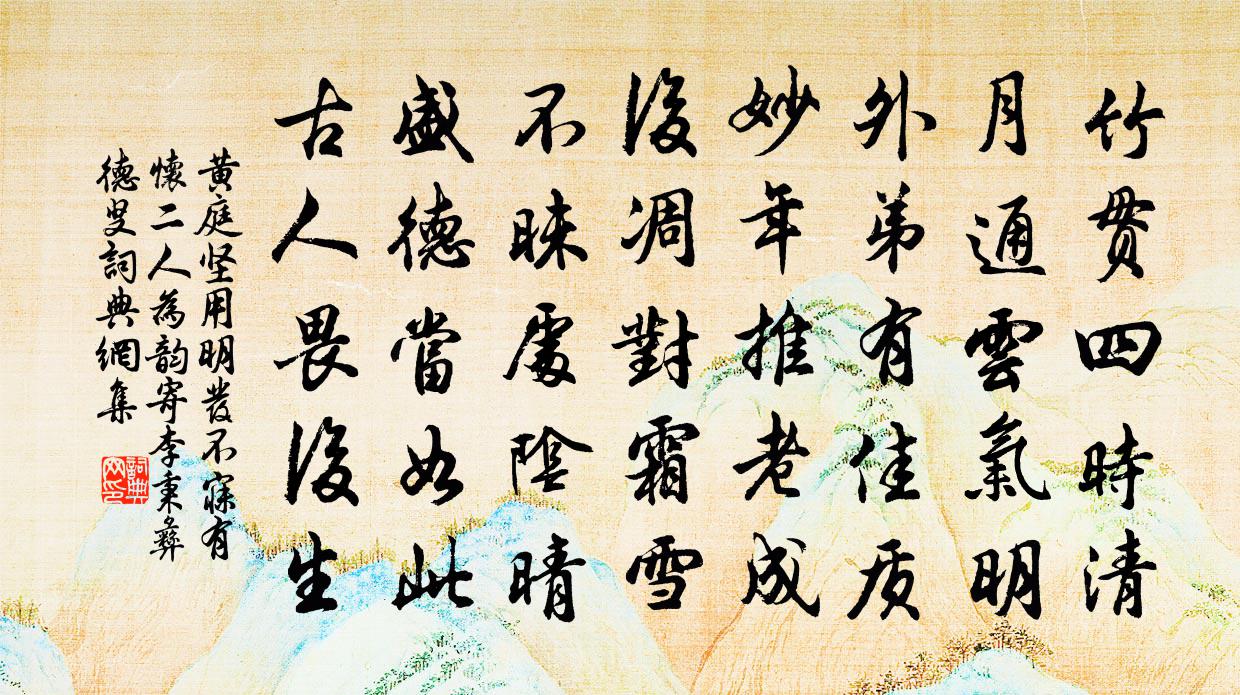 竹貫四時清
月通雲氣明
外弟有佳质
妙年推老成
後凋對霜雪
不昧處陰晴
盛德當如此
古人畏後生
黄庭坚用明發不寐有
懷二人為韵寄李秉彞
德叟詞典網集
詞典